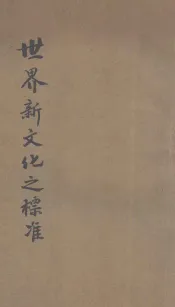 世界新文化之标准